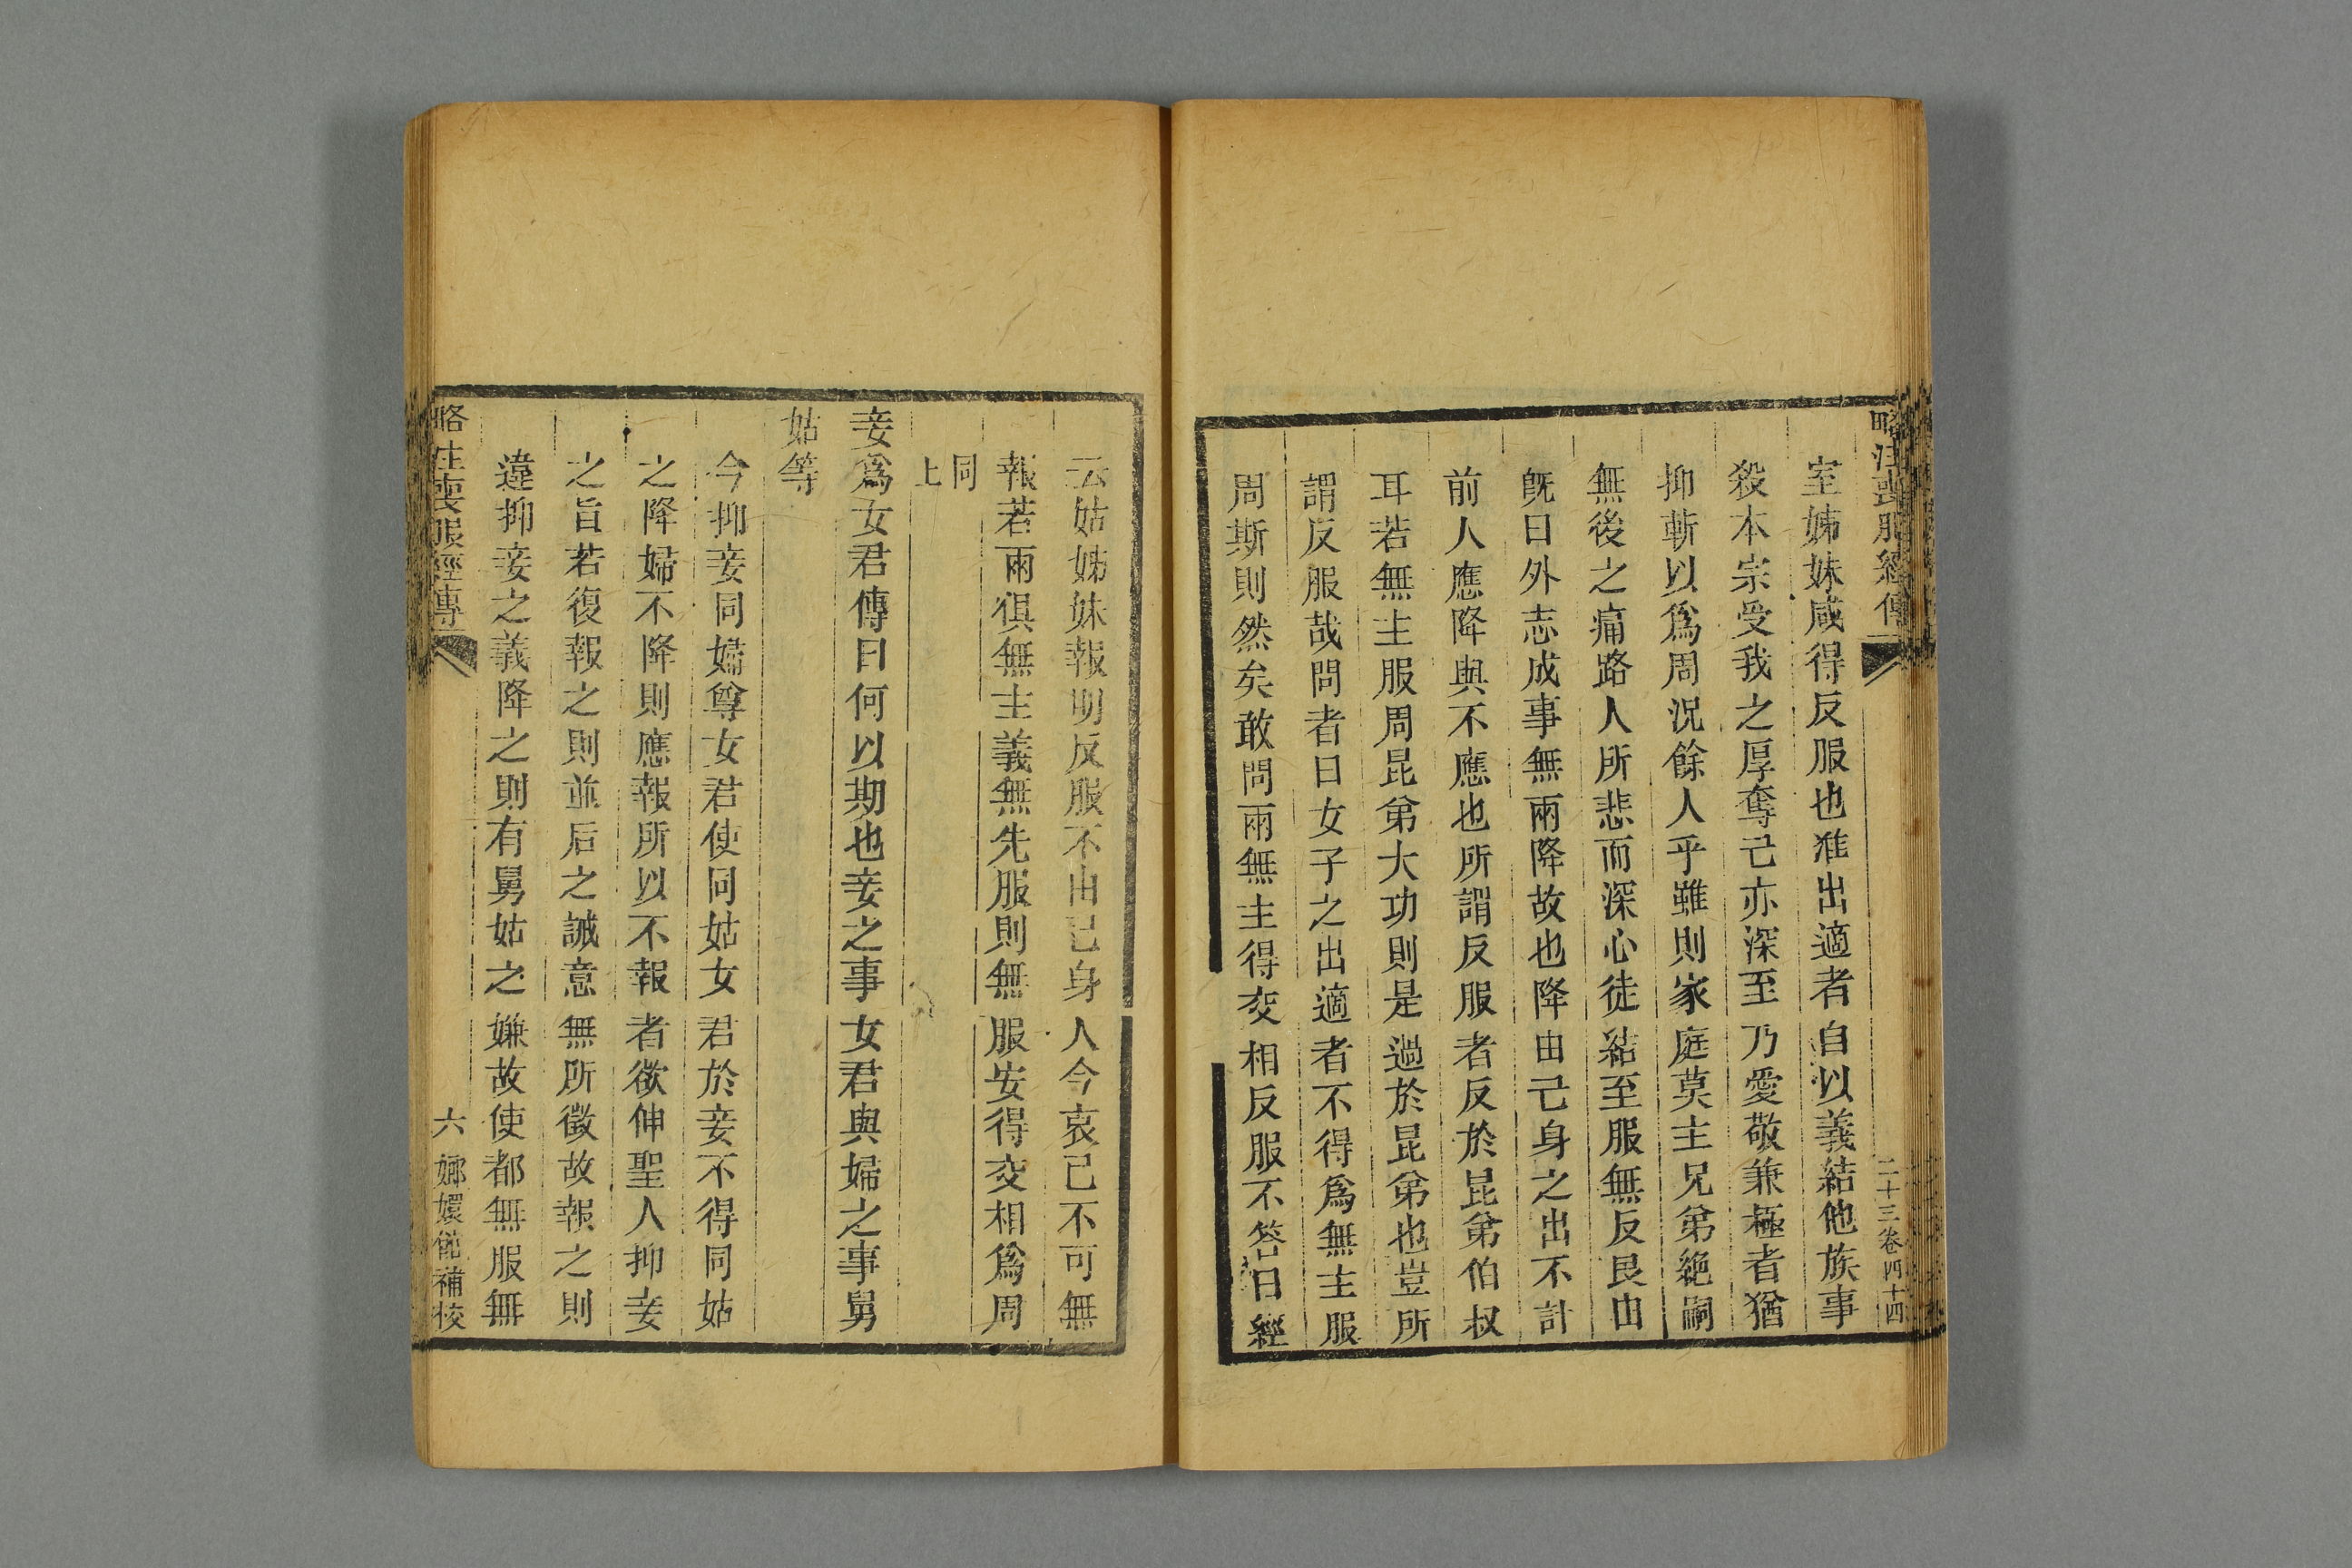 略注喪服經傳
二十三卷四十四
室姊妹咸得反服也准出適者自以義結他族事
殺本宗受我之厚奪己亦深至乃愛敬兼極者猶
抑斬以爲周況餘人乎雖則家庭莫主兄弟絶嗣
無後之痛路人所悲而深心徒結至服無反艮由
旣曰外志成事無兩降故也降由己身之出不計
前人應降與不應也所謂反服者反於昆弟伯叔
耳若無主服周昆弟大功則是過於昆弟也豈所
謂反服哉問者曰女子之出適者不得爲無主服
周斯則然矣敢問兩無主得交相反服不答曰經
云姑姊妹報明反服不由己身人今哀己不可無
報若兩俱無主義無先服則無服安得交相爲周
同
上
妾爲女君傳曰何以期也妾之事女君與婦之事舅
姑等
今抑妾同婦尊女君使同姑女君於妾不得同姑
之降婦不降則應報所以不報者欲伸聖人抑妾
之旨若復報之則並后之誡意無所徵故報之則
違抑妾之義降之則有舅姑之嫌故使都無服無
略注喪服經傳
六
嫏嬛館補校